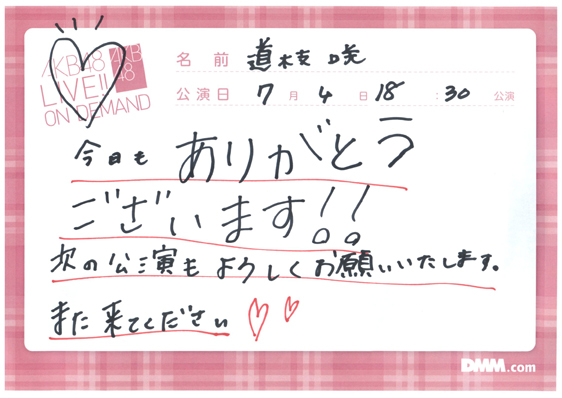 AKB48
LIVE!!
ON DEMAND
AKB
48
名前 道枝咲
公演日 7月4日 18:30 公演
今日も ありがとう
ございます!!
次の公演もよろしくお願いいたします。
また来てください
DMM.com